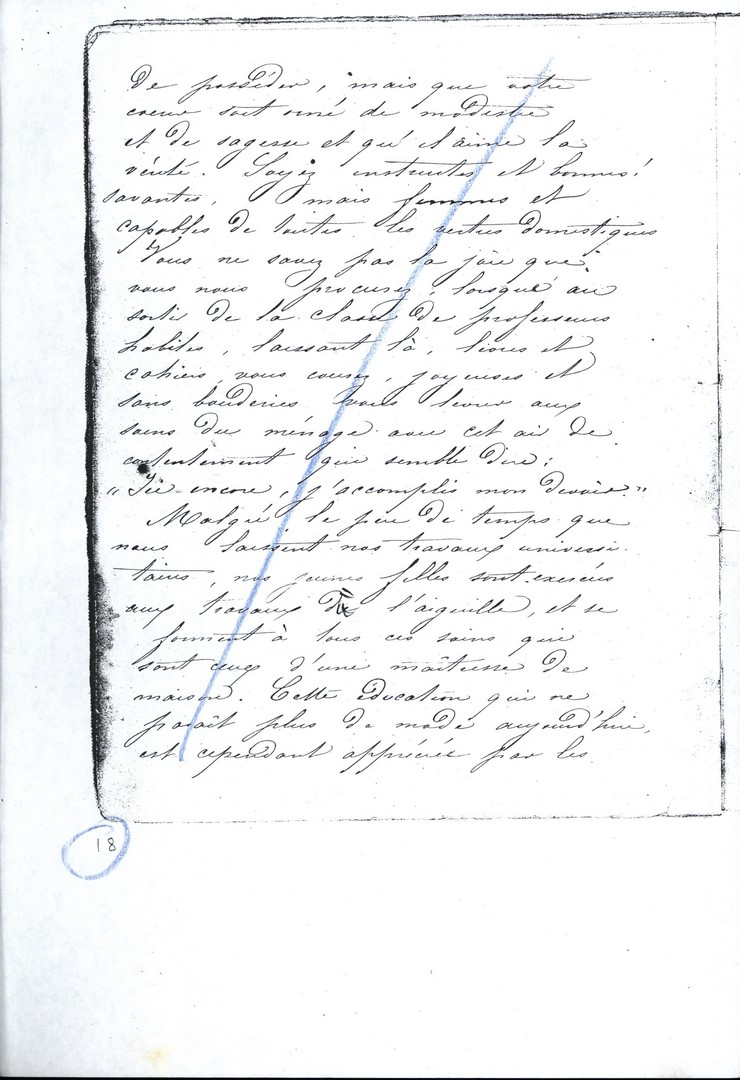 de posséder, mais que votre
coeur soit orné de modestie
et de sagesse et qu'il aime la
vérité. Soyez instruites et bonnes!
savantes, mais femmes et
capables de toutes les vertus domestiques
Vous ne savez pas la joie que
vous nous procurez, lorsque au
sortir de la classe de professeurs
habiles, laissant là, livres et
cahiers vous courez, joyeuses et
sans bouderies vous livrer aux
soins du ménage avec cet air de
contentement qui semble dire:
"Ici encore, j'accomplis mon devoir."
Malgré le peu de temps que
nous laissent nos travaux universi
taires, nos jeunes filles sont exercées
aux travaux de l'aiguille, et se
forment à tous ces soins qui
sont ceux d'une maîtresse de
maison. Cette éducation qui ne
paraît plus de mode aujourd'hui,
est cependant appréciée par les
18